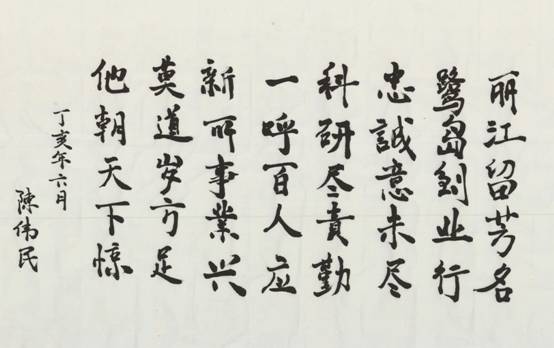 丽江留芳名
鹭岛創业行
忠誠意未尽
科研尽責勤
一呼百人应
新所事業兴
莫道岁方足
他朝天下惊
丁亥年六月
陳伟民